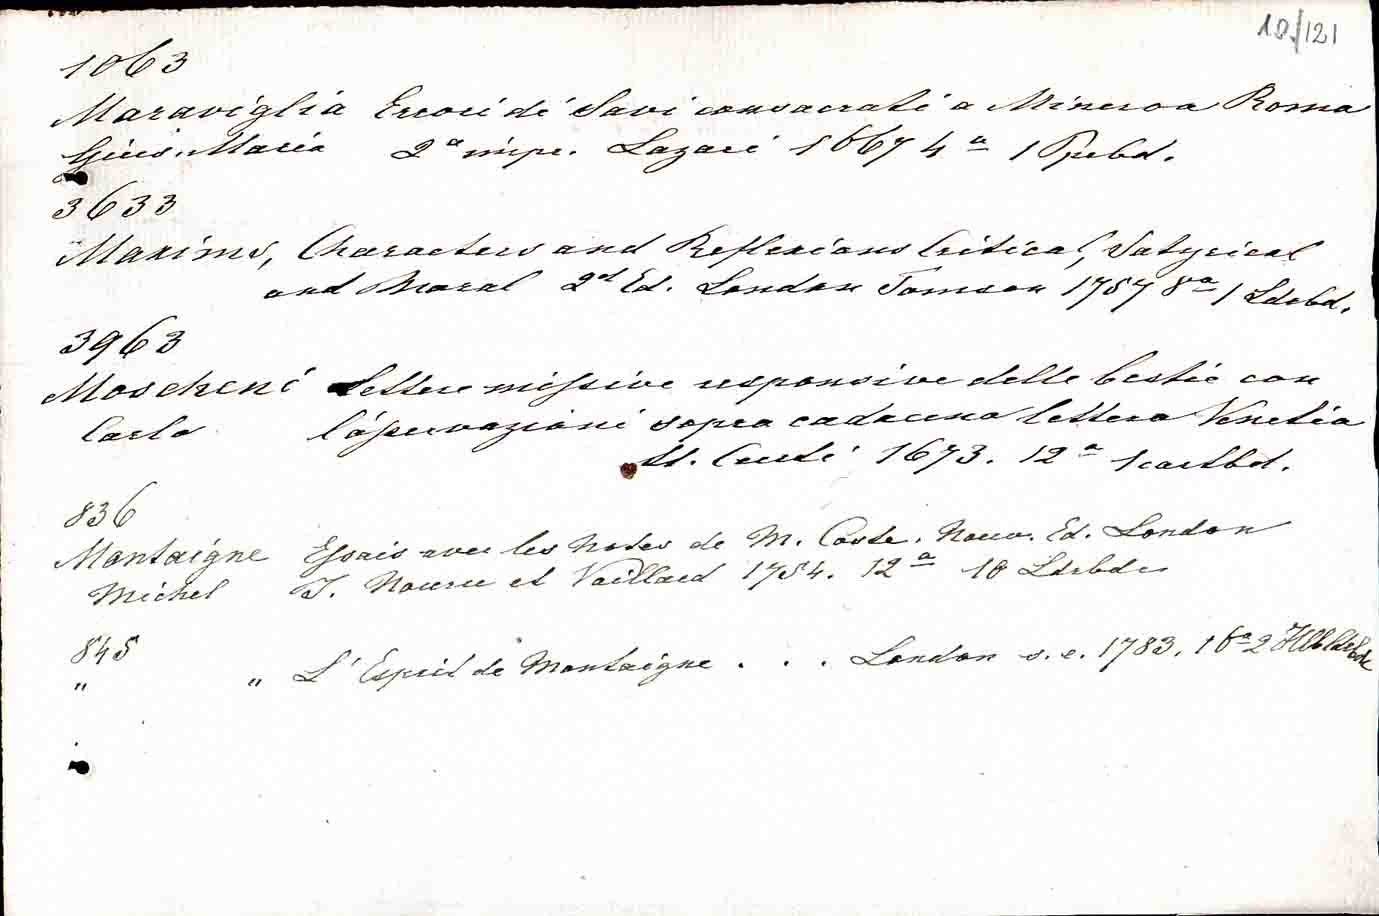 10/121
1063
Maraviglia Errori di Savi consacrati a Minerva Roma
Gius. Maria 2ª impr. Lazari 1667 4ª 1 Ppebd.
3633
Maxims, Characters and Reflexions Critical, Satyrical
and Moral 2d Ed. London Tomson 1757 8va 1 Ldrbd.
3963
Moscheni Lettere missive responsive delle bestie con
Carlo l'osservazioni sopra cadauna lettera Venetia
Conti 1673. 12ª 1 cartbd.
836
Montaigne Essais avec les Notes de M. Coste. Nouv. Ed. London
Michel J. Nourse et Vaillard 1754. 12ª 10 Ldrbde
845
" " L'Esprit de Montaigne . . . London s. e. 1783. 16ª 2